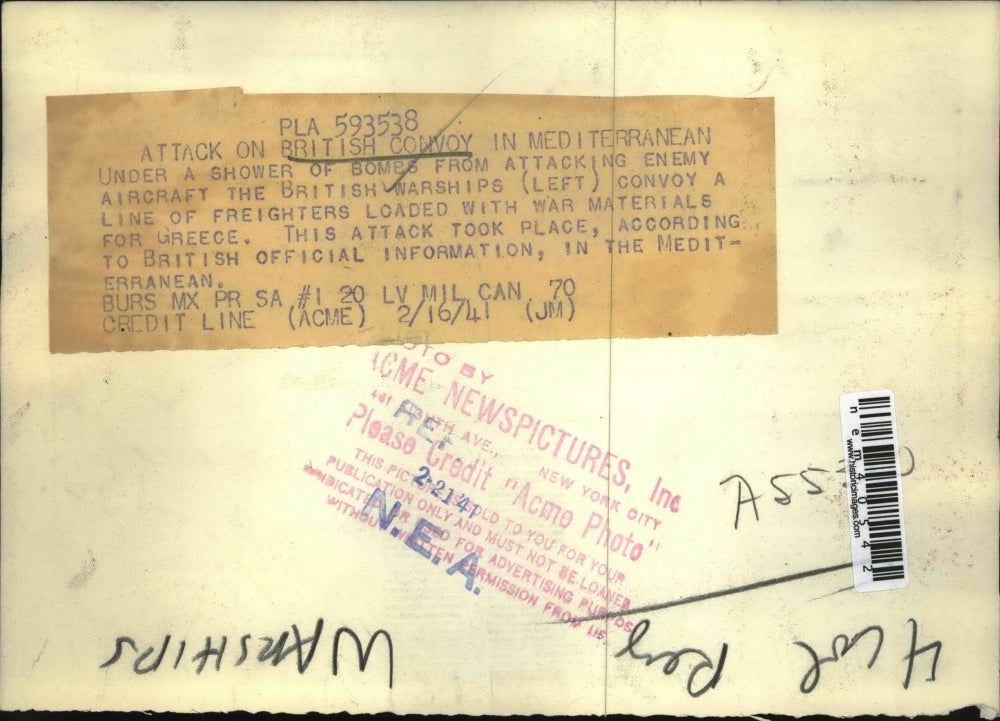 PLA 593538
ATTACK ON BRITISH CONVOY IN MEDITERRANEAN
UNDER A SHOWER OF BOMBS FROM ATTACKING ENEMY
AIRCRAFT THE BRITISH WARSHIPS (LEFT) CONVOY A
LINE OF FREIGHTERS LOADED WITH WAR MATERIALS
FOR GREECE. THIS ATTACK TOOK PLACE, ACCORDING
TO BRITISH OFFICIAL INFORMATION, IN THE MEDIT-
ERRANEAN.
BURS MX PR SA #1 20 LV MIL CAN 70
CREDIT LINE (ACME) 2/16/41 (JM)
PHOTO BY
ACME NEWSPICTURES, Inc
461 EIGHTH AVE., NEW YORK CITY
Please Credit "Acme Photo"
THIS PICTURE IS SOLD TO YOU FOR YOUR
PUBLICATION ONLY AND MUST NOT BE LOANED
SYNDICATED OR USED FOR ADVERTISING PURPOSE
WITHOUT WRITTEN PERMISSION FROM US
REF.
2 21 41
N.E.A.
A55
nem40542
www.historicimages.com
4 col
WARSHIPS